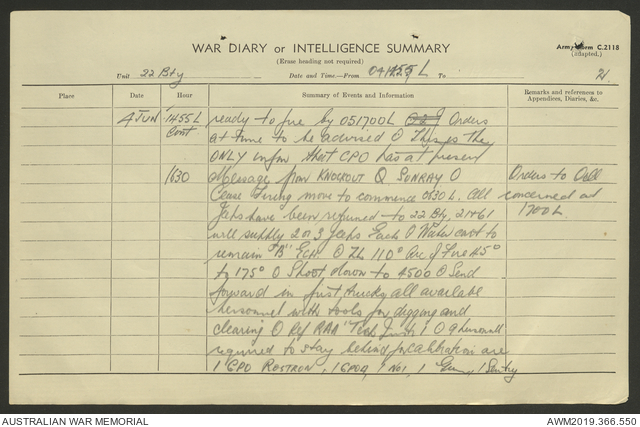 Army Form C.2118
(adapted.)
WAR DIARY or INTELLIGENCE SUMMARY
(Erase heading not required)
Unit 22 Bty Date and Time.—From 041455 L To
21
Place Date Hour Summary of Events and Information Remarks and references to Appendices, Diaries, &c.
4 JUN 1455 L Cont ready to fire by 051700L Orders
at time to be advised O This is the
ONLY infm that CPO has at present
1630 Message from KNOCKOUT O SUNRAY O Orders to all
Cease Firing move to commence 0830 L. All concerned at
Jeeps have been returned to 22 Bty, 21 & 61 1700 L.
will supply 2 or 3 jeeps each O Water cart to
remain "B" Ech. O 110° Arc of Fire 45°
to 175° O Shoot down to 4500 O Send
forward in first trucks all available
personnel with tools for digging and
clearing O Ref RAA "Tech 1 O 9 personnel
required to stay behind for calibration are
1 GPO ROSTRON, 1 GPOA, 1 No1, 1 1 Sentry
AUSTRALIAN WAR MEMORIAL
AWM2019.366.550